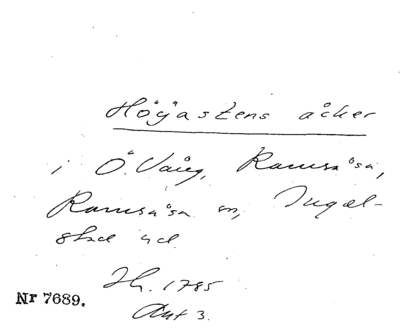 Högastens åcker
i Ö. Vång, Ramsåsa,
Ramsåsa sn, Ingel-
stad hd.
Jh. 1785
Akt 3.
Nr 7689.